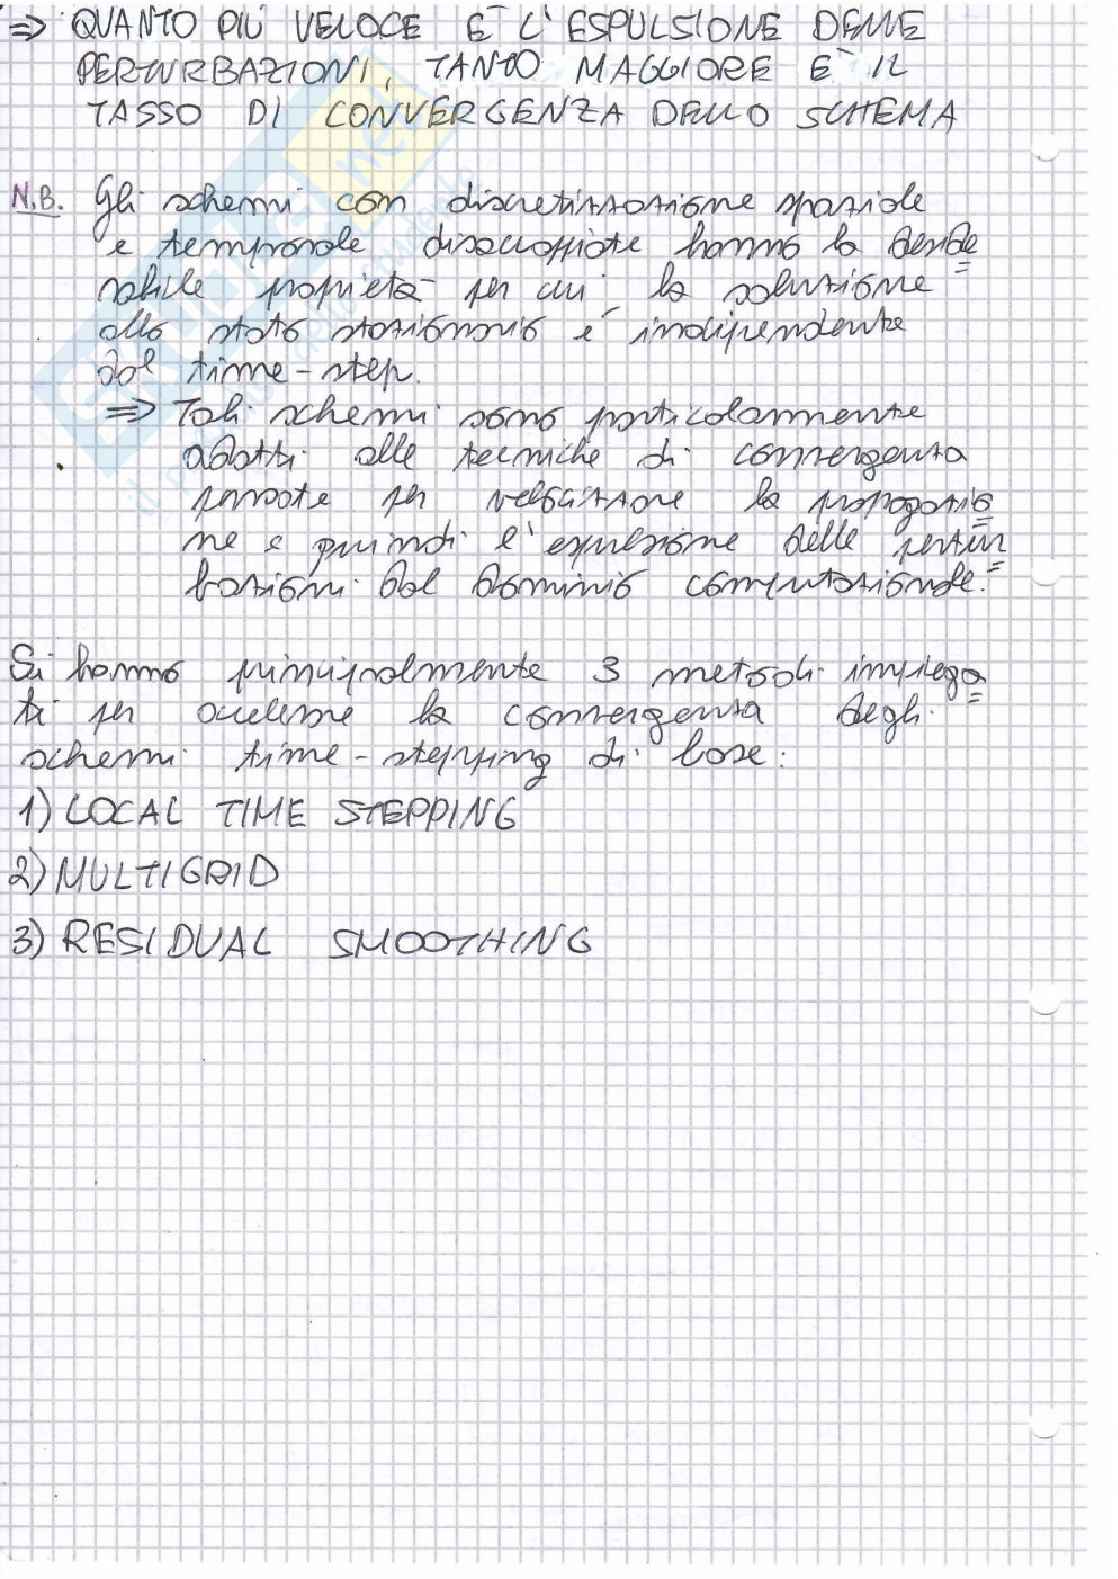 ⇒ QUANTO PIÙ VELOCE È L'ESPULSIONE DELLE
PERTURBAZIONI, TANTO MAGGIORE È IL
TASSO DI CONVERGENZA DELLO SCHEMA
N.B. Gli schemi con discretizzazione spaziale
e temporale disaccoppiate hanno la deside
rabile proprietà per cui la soluzione
allo stato stazionario è indipendente
dal time-step.
⇒ Tali schemi sono particolarmente
adatti alle tecniche di convergenza
pensate per velocizzare la propagazio
ne e quindi l'espulsione delle pertur
bazioni dal dominio computazionale.
Si hanno principalmente 3 metodi impiega
ti per accelerare la convergenza degli
schemi time-stepping di base:
1) LOCAL TIME STEPPING
2) MULTIGRID
3) RESIDUAL SMOOTHING